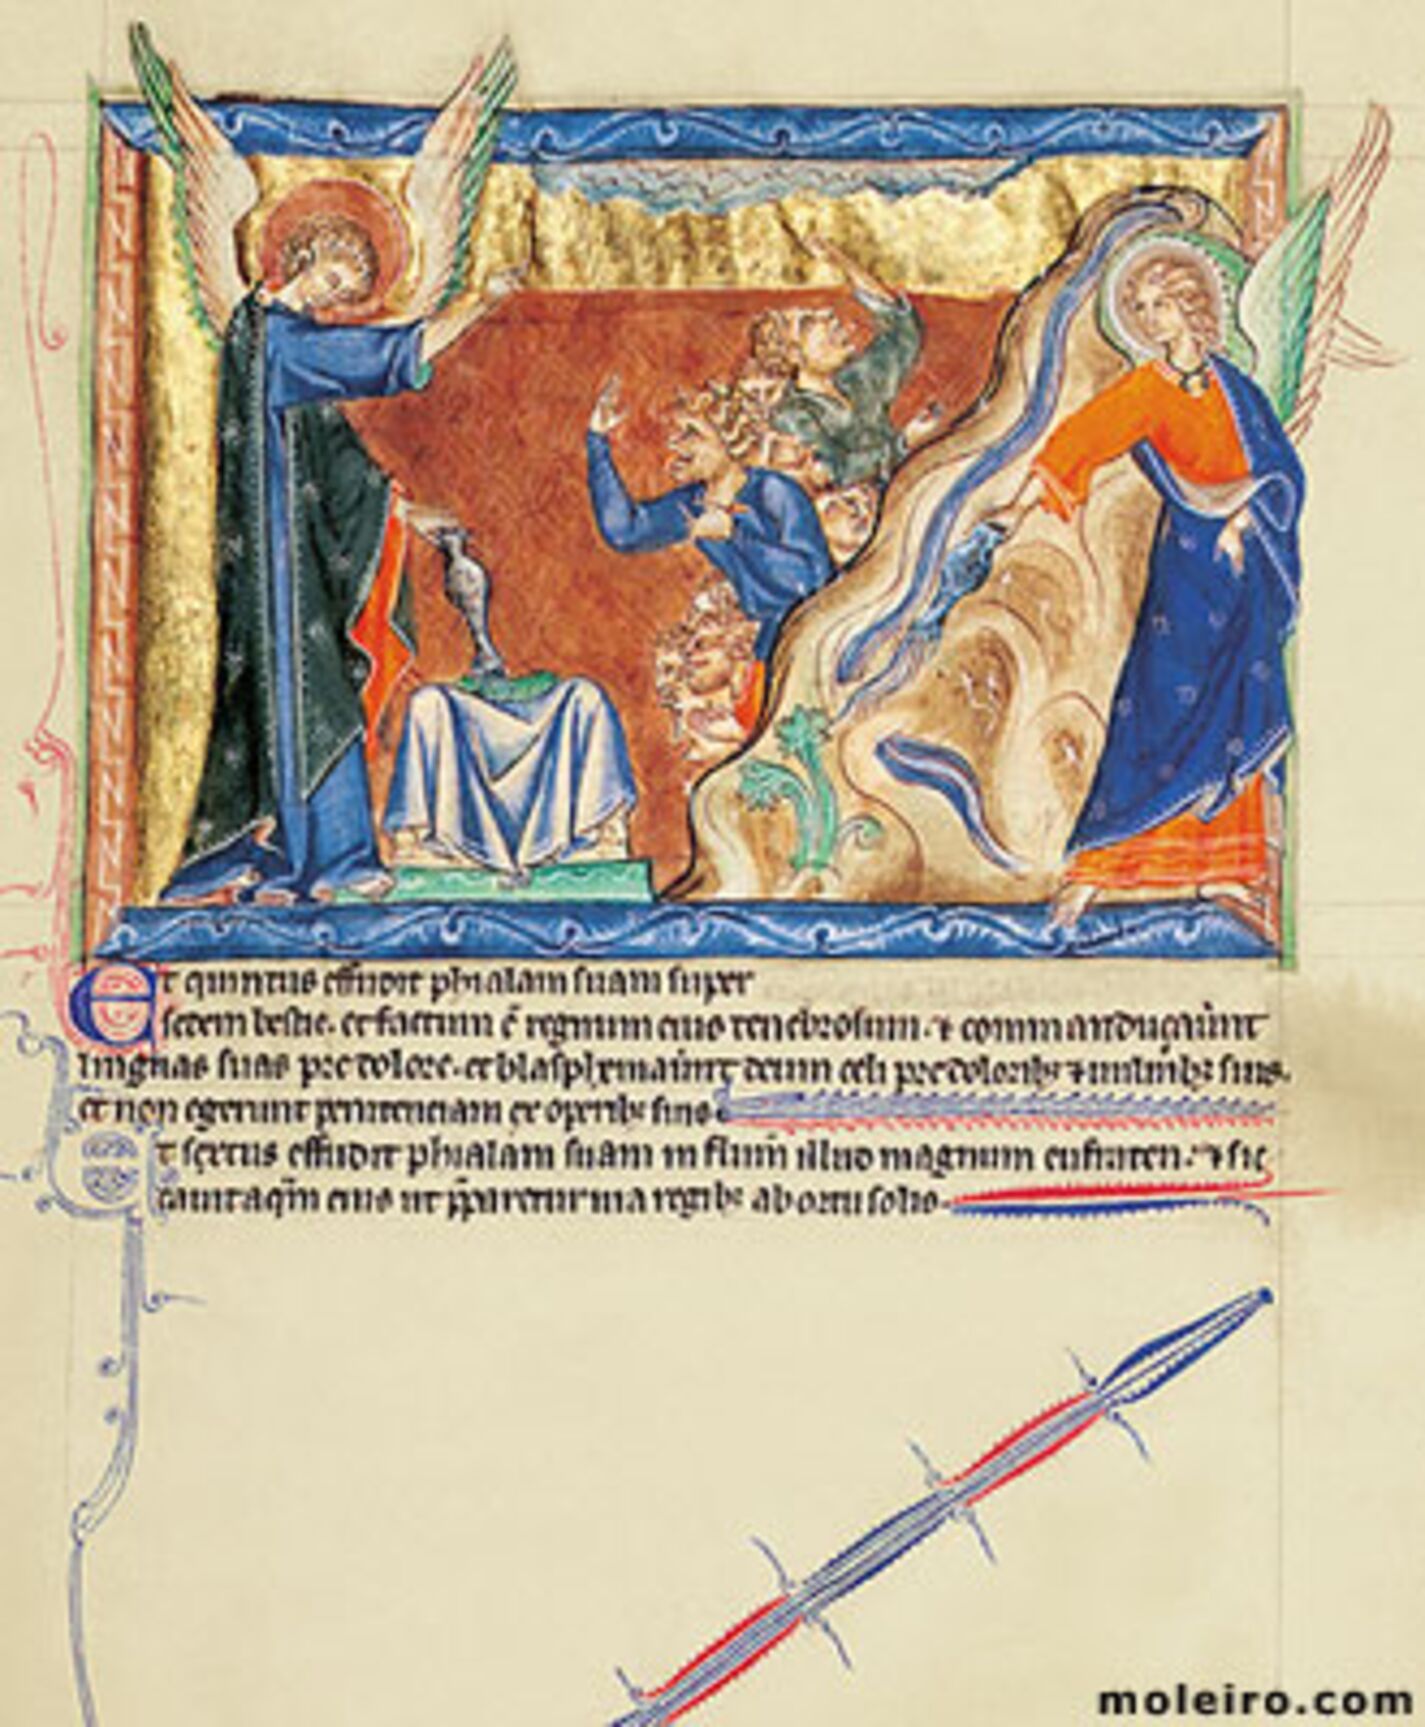 Et quintus effudit phialam suam super
sedem bestie. et factum ē regnum eius tenebrosum. ⁊ commanducauer̄unt
linguas suas pre dolore. et blasphemauer̄unt deum celi pre doloribꝫ ⁊ uulneribꝫ suis.
et non egerunt penitenciam ex operibꝫ suis
Et sextus effudit phialam suam in flum̄ illud magnum eufraten. ⁊ sic
cauit aqm̄ eius ut p̄pararetur uia regibꝫ ab ortu solis.
moleiro.com